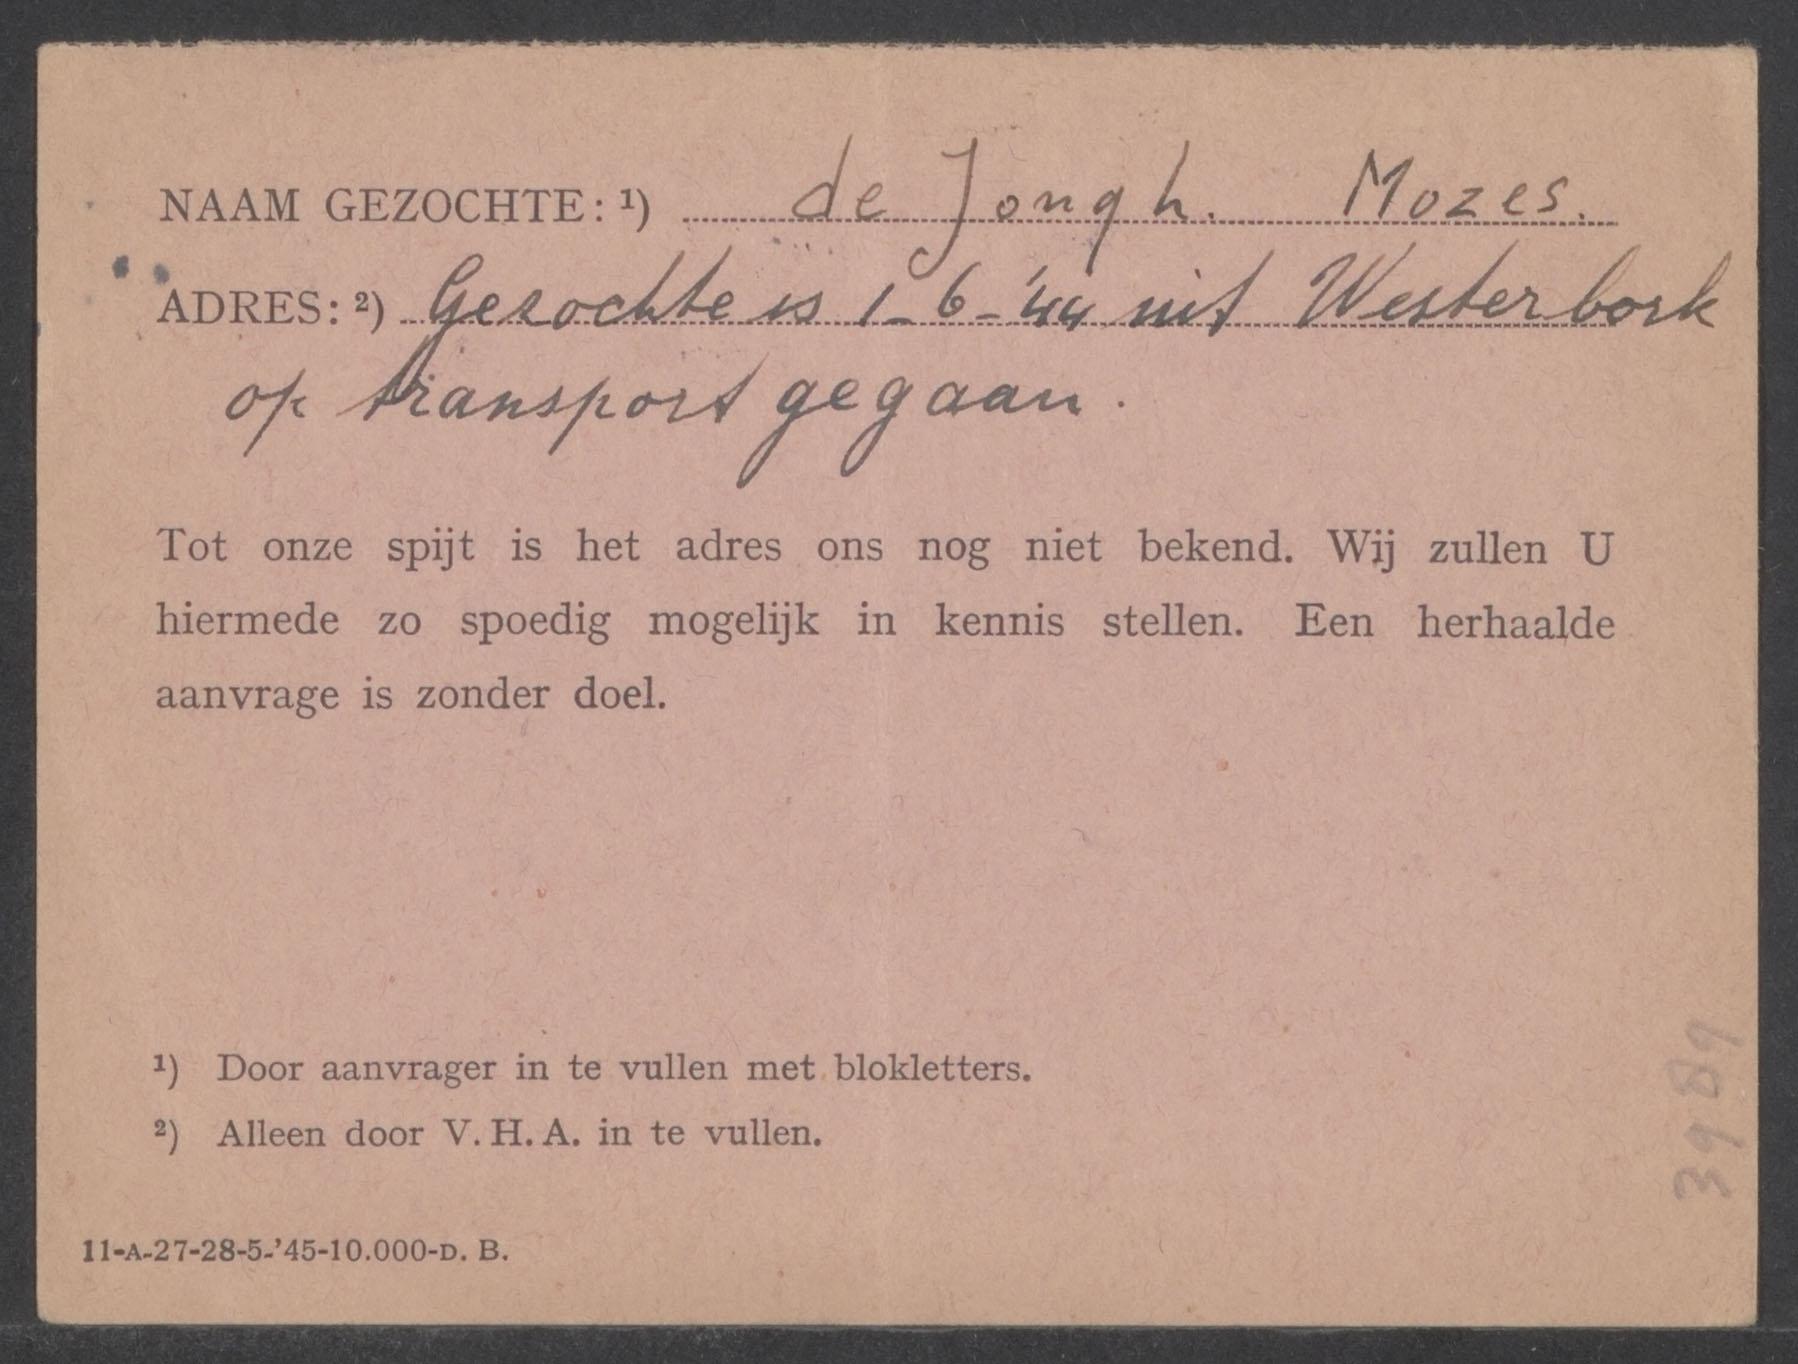 NAAM GEZOCHTE: ¹) de Jongh. Mozes.
ADRES: ²) Gezochte is 1-6-'44 uit Westerbork
op transport gegaan.
Tot onze spijt is het adres ons nog niet bekend. Wij zullen U
hiermede zo spoedig mogelijk in kennis stellen. Een herhaalde
aanvrage is zonder doel.
¹) Door aanvrager in te vullen met blokletters.
²) Alleen door V. H. A. in te vullen.
11-A-27-28-5-'45-10.000-D. B.
3989